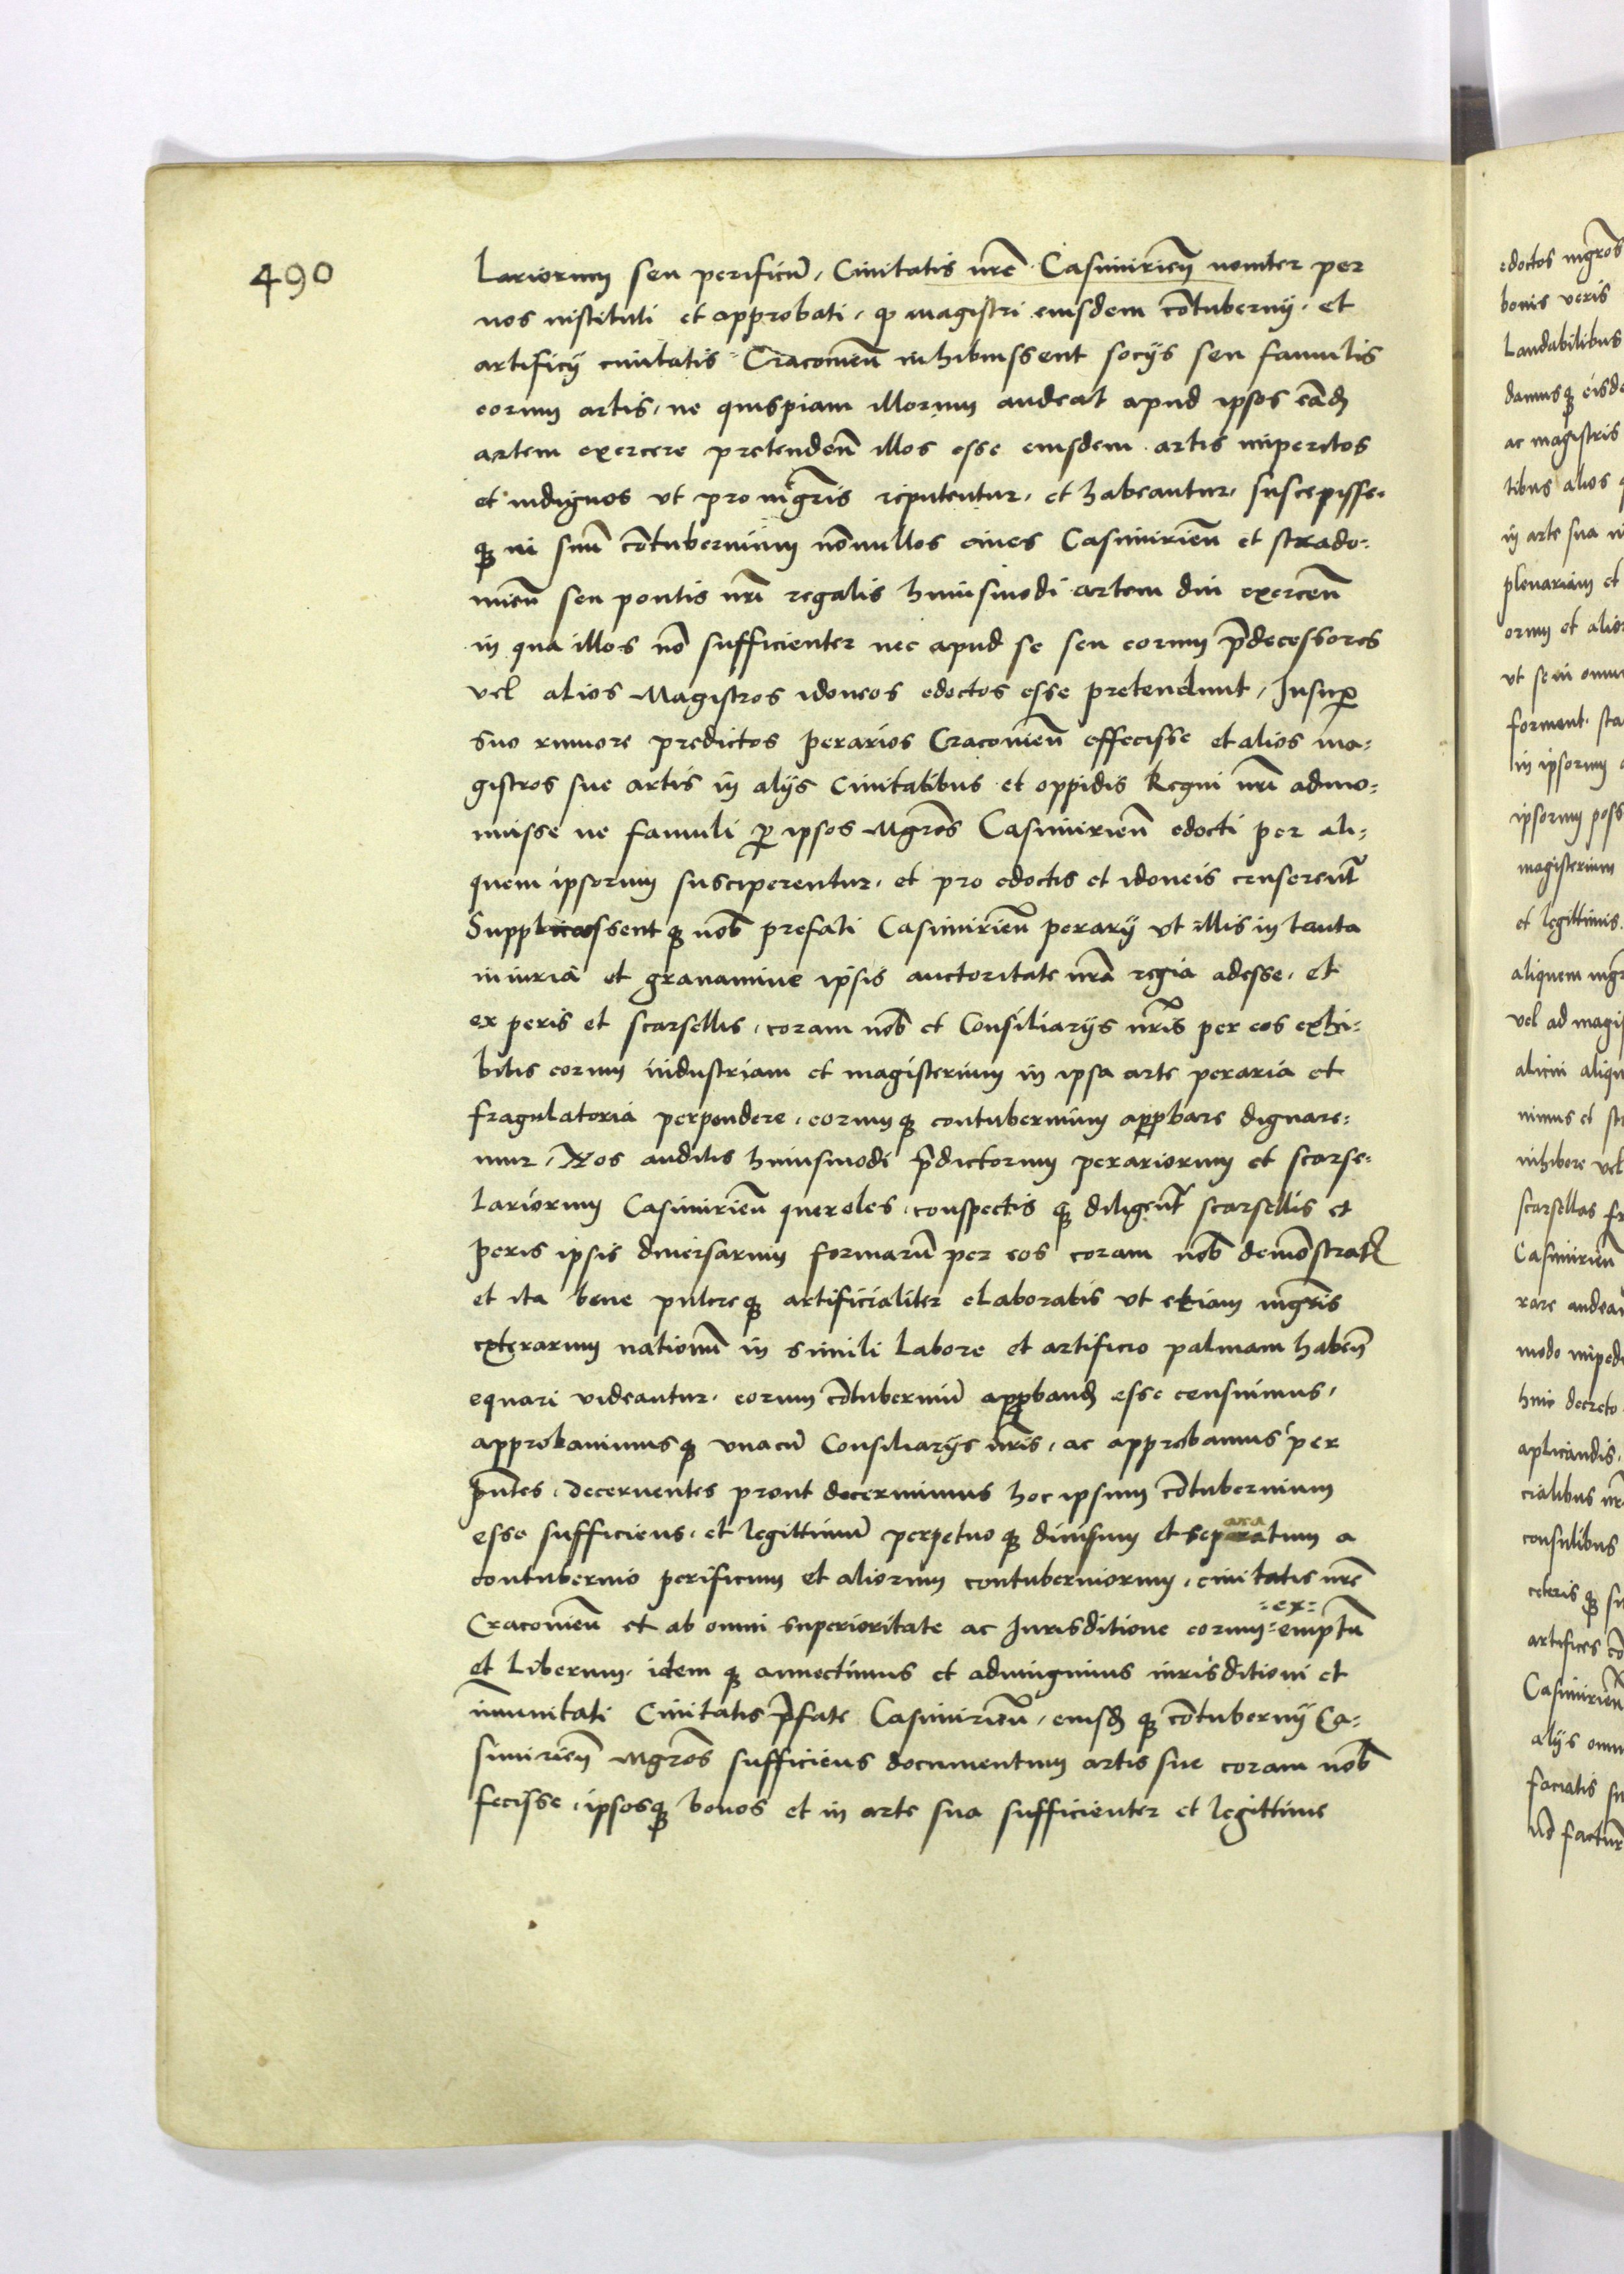 490
Lariorum seu perificũ, Ciuitatis nr̃e Casimirieñ nouiter per
nos instituti et approbati, ꝙ magistri eiusdem cõtubernij, et
artificij ciuitatis Cracouieñ inhibuissent socijs seu famulis
eorum artis, ne quispiam illorum audeat apud ipsos eãdẽ
artem exercere pretendeñ illos esse eiusdem artis imperitos
et indignos vt pro mgr̃is reputentur, et habeantur, suscepisse-
qꝫ in suũ cõtubernium nõnullos ciues Casimirieñ et strado-
mieñ seu pontis nr̃i regalis huiusmodi artem diu exerceñ
in qua illos nõ sufficienter nec apud se seu eorum p̃decessores
vel alios Magistros idoneos edoctos esse pretendunt, Insuꝑ
suo rumore predictos perarios Cracouieñ effecisse et alios ma-
gistros sue artis in alijs Ciuitatibus et oppidis Regni nr̃i admo-
nuisse ne famuli ꝑ ipsos Mgr̃os Casimirieñ edocti per ali-
quem ipsorum susciperentur, et pro edoctis et idoneis censerent̃
Supplicassent qꝫ nob̃ prefati Casimirieñ perarij vt illis in tanta
iniuria et grauamine ipsis auctoritate nr̃a regia adesse, et
ex peris et scarsellis, coram nob̃ et Consiliarijs nr̃is per eos exhi-
bitis eorum industriam et magisterium in ipsa arte peraria et
fragulatoria perpendere, eorum qꝫ contubernium apꝓbare dignare-
mur, Nos auditis huiusmodi p̃dictorum perariorum et scarse-
lariorum Casimirieñ quereles, conspectis qꝫ diligent̃ scarsellis et
peris ipsis diuersarum formarũ per eos coram nob̃ demõstrat̃
et ita bene pulcre qꝫ artificialiter elaboratis vt etiam mgr̃is
exterarum nationũ in simili labore et artificio palmam habeñ
equari videantur, eorum cõtuberniũ apꝓbandẽ esse censuimus,
approbauimus qꝫ vnacũ Consiliarijs nr̃is, ac approbamus per
p̃ntes, decernentes prout decernimus hoc ipsum cõtubernium
esse sufficiens, et legittimũ perpetuo qꝫ diuisum et separatum a
contubernio perificum et aliorum contuberniorum, ciuitatis nr̃e
Cracouieñ et ab omni superioritate ac Jurisditione eorum =ex= emptũ
et Liberum, idem qꝫ annectimus et adiungimus iurisditioni et
im̃unitati Ciuitatis p̃fate Casimirieñ, eiusdẽ qꝫ cõtubernij Ca-
simirieñ Mgr̃os sufficiens documentum artis sue coram nob̃
fecisse, ipsosqꝫ bonos et in arte sua sufficienter et legittime
edoctos mgr̃os
bonis veris
Laudabilibus
damusqꝫ eisde
ac magistris
tibus alios
in arte sua
plenarium et
orum et alior
vt se in omni
forment, sta
in ipsorum
ipsorum poss
magisterium
et legittimis
aliquem mgr̃
vel ad magis
alicui aliqu
nimus et
inhibere vel
scarsellas fr
Casimirieñ
rare audean
modo impedi
huic decreto
aplicandis,
cialibus nr̃
consulibus
ceteris qꝫ su
artifices cõ
Casimirieñ
alijs omni
faciatis
factur